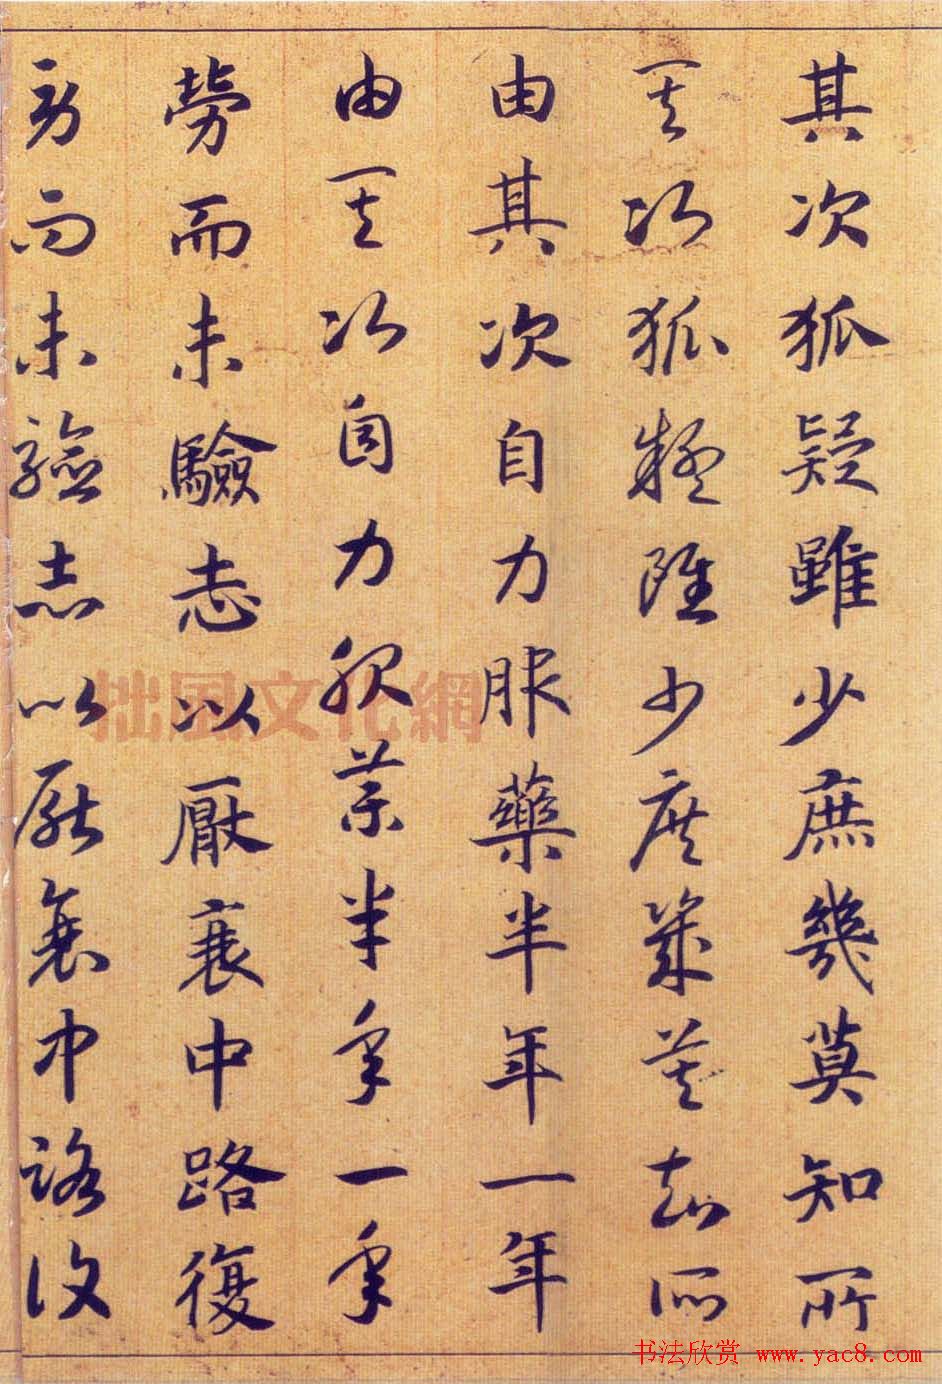 其次狐疑雖少庶幾莫知所
其次狐疑雖少庶幾莫知所
由其次自力服藥半年一年
由其次自力服藥半年一年
勞而未驗志以厭衰中路復
勞而未驗志以厭衰中路復
拙風文化網
书法欣赏 www.yac8.com